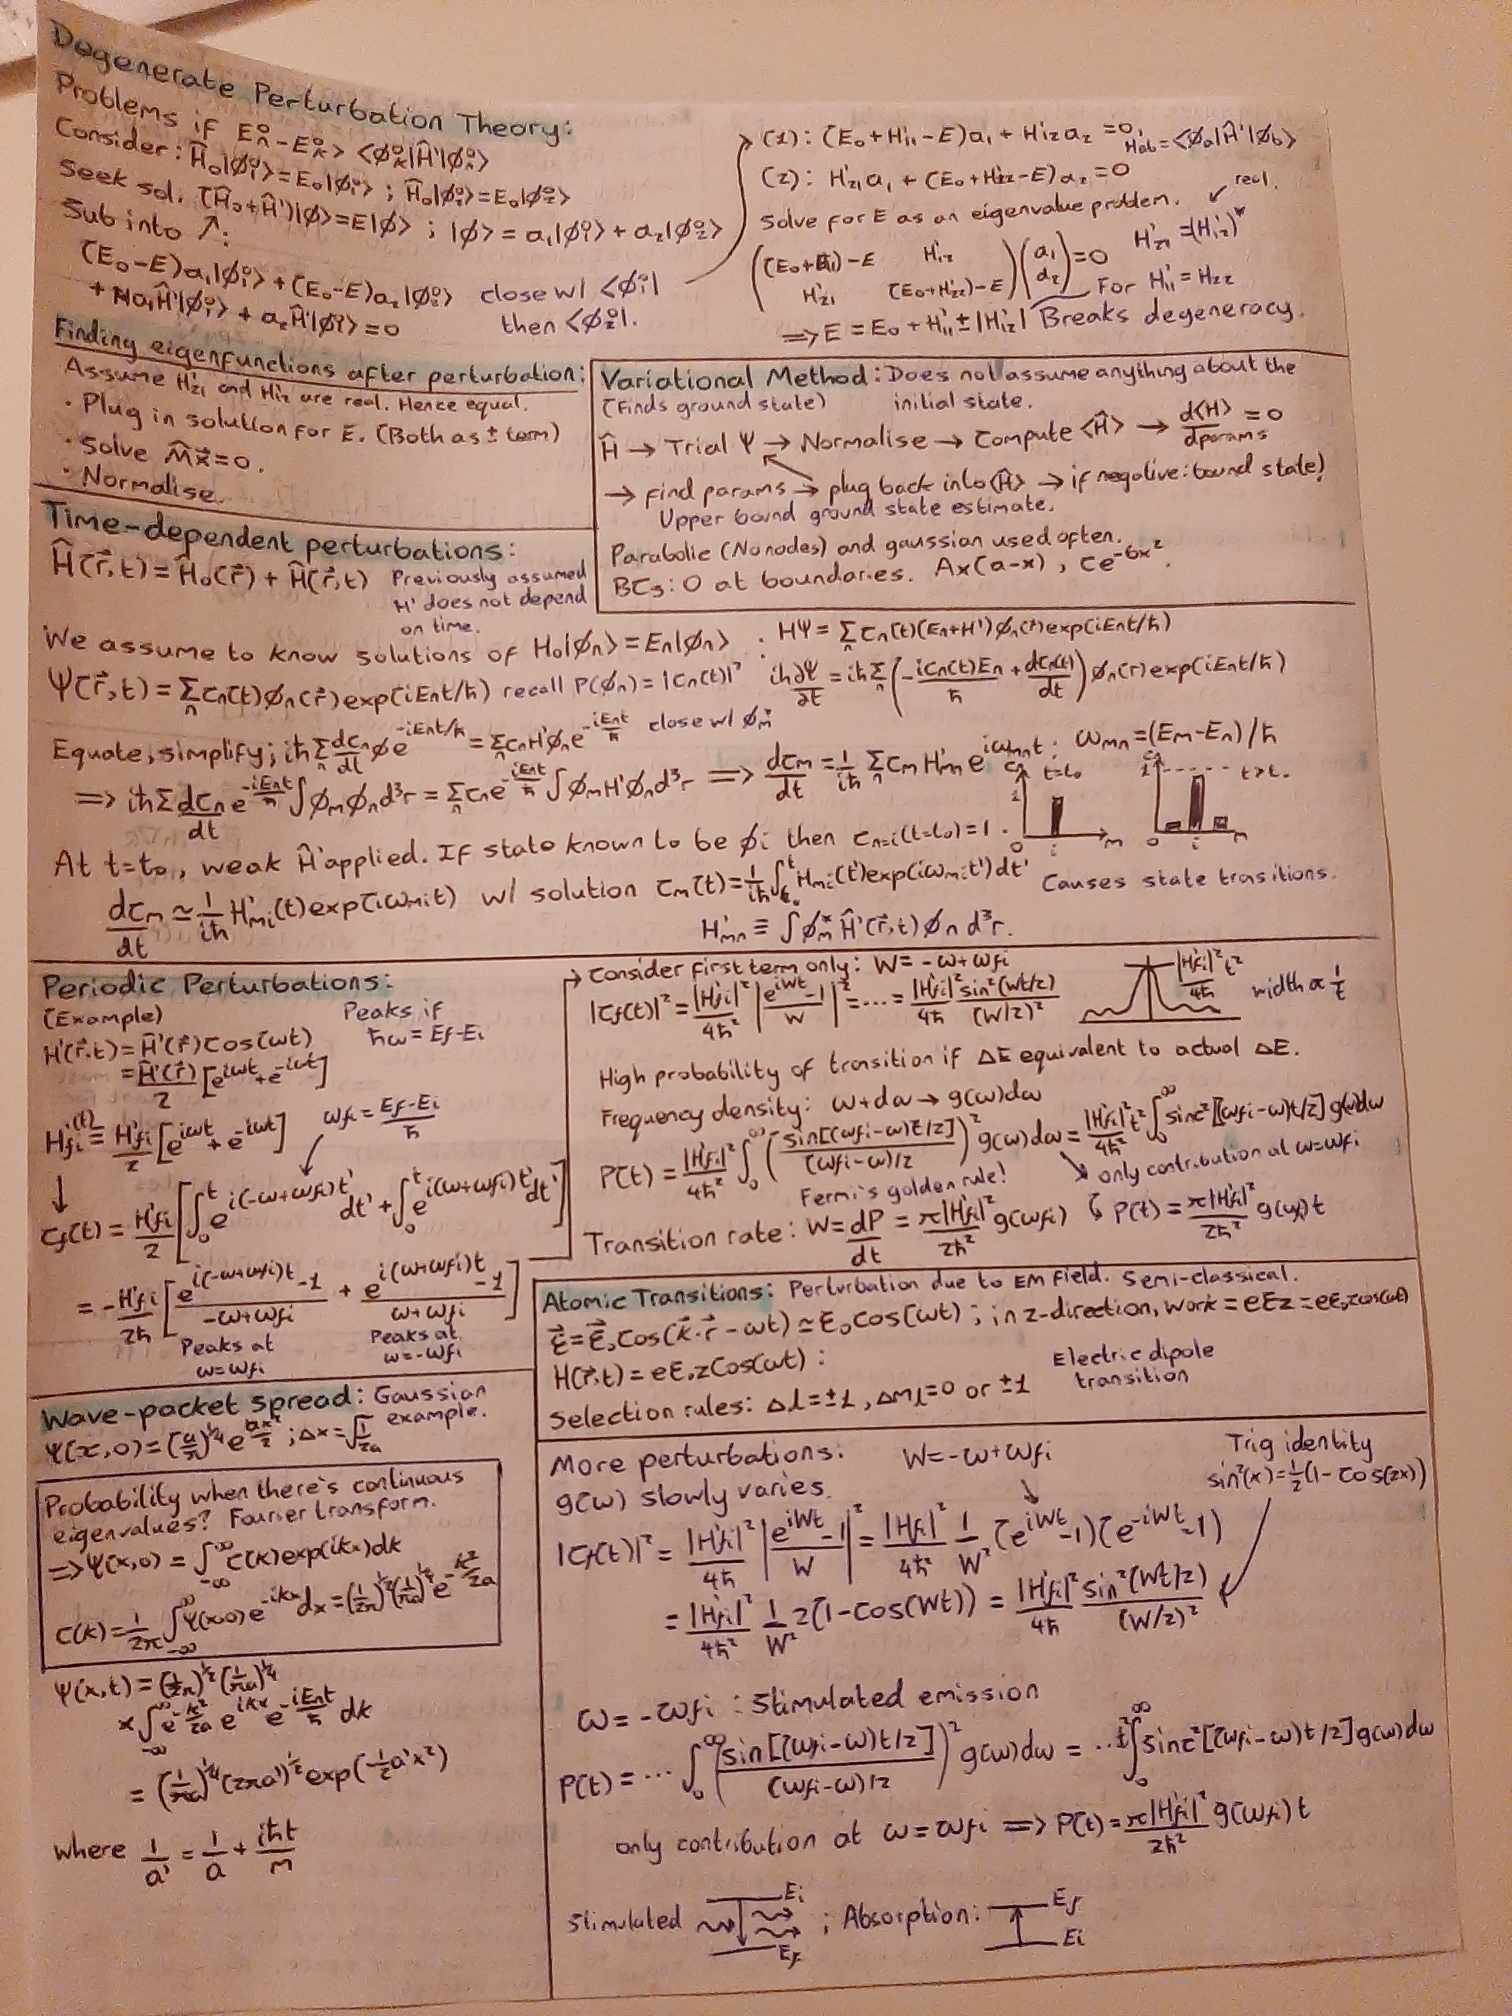 Degenerate Perturbation Theory:
Problems if Eₙ⁰-Eₖ⁰ > <ϕₖ⁰|Ĥ'|ϕₙ⁰>
Consider: Ĥ₀|ϕ₁⁰>=E₀|ϕ₁⁰> ; Ĥ₀|ϕ₂⁰>=E₀|ϕ₂⁰>
Seek sol. (Ĥ₀+Ĥ')|ϕ>=E|ϕ> ; |ϕ> = a₁|ϕ₁⁰> + a₂|ϕ₂⁰>
Sub into ↗:
(E₀-E)a₁|ϕ₁⁰> + (E₀-E)a₂|ϕ₂⁰> close w/ <ϕ₁⁰|
+ a₁Ĥ'|ϕ₁⁰> + a₂Ĥ'|ϕ₁⁰> = 0 then <ϕ₂⁰|.
(1): (E₀+H'₁₁-E)a₁ + H'₁₂a₂ = 0, Hab=<ϕa|Ĥ'|ϕb>
(2): H'₂₁a₁ + (E₀+H'₂₂-E)a₂=0
Solve for E as an eigenvalue problem. real.
((E₀+H'₁₁)-E H'₁₂)(a₁)=0 H'₂₁=(H'₁₂)*
(H'₂₁ (E₀+H'₂₂)-E)(a₂) For H'₁₁ = H₂₂
⇒ E = E₀ + H'₁₁ ± |H'₁₂| Breaks degeneracy.
Finding eigenfunctions after perturbation:
Assume H'₂₁ and H'₁₂ are real. Hence equal.
· Plug in solution for E. (Both as ± term)
· Solve M̂x⃗=0.
· Normalise.
Variational Method: Does not assume anything about the
(Finds ground state) initial state.
Ĥ → Trial Ψ → Normalise → Compute <Ĥ> → d<H>/dparams = 0
→ find params → plug back into <Ĥ> → if negative: bound state!
Upper bound ground state estimate.
Parabolic (No nodes) and gaussian used often.
BCs: 0 at boundaries. Ax(a-x), Ce^(-bx²).
Time-dependent perturbations:
Ĥ(r⃗,t) = Ĥ₀(r⃗) + Ĥ(r⃗,t) Previously assumed
H' does not depend
on time.
We assume to know solutions of H₀|ϕₙ> = Eₙ|ϕₙ> : HΨ = Σₙ cₙ(t)(Eₙ+H')ϕₙ(r⃗)exp(iEₙt/ħ)
Ψ(r⃗,t) = Σₙ cₙ(t)ϕₙ(r⃗)exp(iEₙt/ħ) recall P(ϕₙ) = |cₙ(t)|² iħ∂Ψ/∂t = iħΣₙ(-icₙ(t)Eₙ/ħ + dcₙ(t)/dt)ϕₙ(r)exp(iEₙt/ħ)
Equate, simplify; iħΣₙ dcₙ/dt ϕe^(-iEₙt/ħ) = Σₙ cₙH'ϕₙe^(-iEₙt/ħ) close w/ ϕₘ*
⇒ iħΣ dcₙ/dt e^(-iEₙt/ħ)∫ϕₘϕₙd³r = Σₙ cₙe^(-iEₙt/ħ)∫ϕₘH'ϕₙd³r ⇒ dcₘ/dt = 1/iħ Σₙ cₘH'ₘₙe^(iωₘₙt) : ωₘₙ=(Eₘ-Eₙ)/ħ
t=t₀ t>t₀
1 0 i m 1 0 i m
At t=t₀, weak Ĥ' applied. If state known to be ϕi then cₙ₌ᵢ(t=t₀)=1.
dcₘ/dt ≃ 1/iħ H'ₘᵢ(t)exp(iωₘᵢt) w/ solution cₘ(t) = 1/iħ ∫ₜ₀ᵗ Hₘᵢ(t')exp(iωₘᵢt')dt' Causes state trasitions.
H'ₘₙ ≡ ∫ϕₘ*Ĥ'(r⃗,t)ϕₙd³r.
Periodic Perturbations:
(Example) Peaks if
H'(r⃗,t) = Ĥ'(r⃗)cos(ωt) ħω = Ef-Ei
= Ĥ'(r⃗)/2 [e^(iωt)+e^(-iωt)]
H'fi(t) ≡ H'fi/2 [e^(iωt)+e^(-iωt)] ωfi = (Ef-Ei)/ħ
↓
cf(t) = H'fi/2 [∫₀ᵗ e^(i(-ω+ωfi)t')dt' + ∫₀ᵗ e^(i(ω+ωfi)t')dt']
= -H'fi/2ħ [(e^(i(-ω+ωfi)t)-1)/(-ω+ωfi) + (e^(i(ω+ωfi)t)-1)/(ω+ωfi)]
Peaks at Peaks at
ω=ωfi ω=-ωfi
Consider first term only: W = -ω+ωfi
|cf(t)|² = |H'fi|²/4ħ² |(e^(iWt)-1)/W|² = ... = |H'fi|²/4ħ sin²(Wt/2)/(W/2)² |H'fi|²t²/4ħ width ∝ 1/t
High probability of transition if ΔE equivalent to actual ΔE.
Frequency density: ω+dω → g(ω)dω
P(t) = |H'fi|²/4ħ² ∫₀^∞ (sin[(ωfi-ω)t/2]/(ωfi-ω)/2)² g(ω)dω = |H'fi|²t²/4ħ² ∫₀^∞ sinc²[(ωfi-ω)t/2]g(ω)dω
Fermi's golden rule! only contribution at ω=ωfi
Transition rate: W = dP/dt = π|H'fi|²/2ħ² g(ωfi) ↳ P(t) = π|H'fi|²/2ħ² g(ωfi)t
Atomic Transitions: Perturbation due to EM field. Semi-classical.
ε⃗=ε⃗₀cos(k⃗·r⃗-ωt) ≃ ε₀cos(ωt) ; in z-direction, work = eεz = eε₀zcos(ωt)
H(r⃗,t) = eε₀zcos(ωt) : Electric dipole
transition
Selection rules: Δl=±1, Δml=0 or ±1
Wave-packet spread: Gaussian
example.
Ψ(x,0) = (a/π)^¼ e^(ax²/2) ; Δx=√(1/2a)
Probability when there's continuous
eigenvalues? Fourier transform.
⇒ Ψ(x,0) = ∫₋∞^∞ c(k)exp(ikx)dk
C(k) = 1/2π ∫₋∞^∞ Ψ(x,0)e^(-ikx)dx = (1/2π)^½(1/πa)^¼ e^(-k²/2a)
Ψ(x,t) = (1/2π)^½(1/πa)^¼
×∫₋∞^∞ e^(-k²/2a) e^(ikx) e^(-iEₙt/ħ) dk
= (1/πa)^¼(2πa')^½exp(-½a'x²)
where 1/a' = 1/a + iħt/m
More perturbations: W=-ω+ωfi Trig identity
g(ω) slowly varies. sin²(x)=½(1-cos(2x))
|cf(t)|² = |H'fi|²/4ħ |(e^(iWt)-1)/W|² = |Hfi|²/4ħ² 1/W² (e^(iWt)-1)(e^(-iWt)-1)
= |H'fi|²/4ħ² 1/W² 2(1-cos(Wt)) = |H'fi|²/4ħ sin²(Wt/2)/(W/2)²
ω = -ωfi : Stimulated emission
P(t) = ... ∫₀^∞ (sin[(ωfi-ω)t/2]/(ωfi-ω)/2)² g(ω)dω = ... t²∫₀^∞ sinc²[(ωfi-ω)t/2]g(ω)dω
only contribution at ω=ωfi ⇒ P(t) = π|H'fi|²/2ħ² g(ωfi)t
Stimulated Ei Ef ; Absorption: Ef Ei